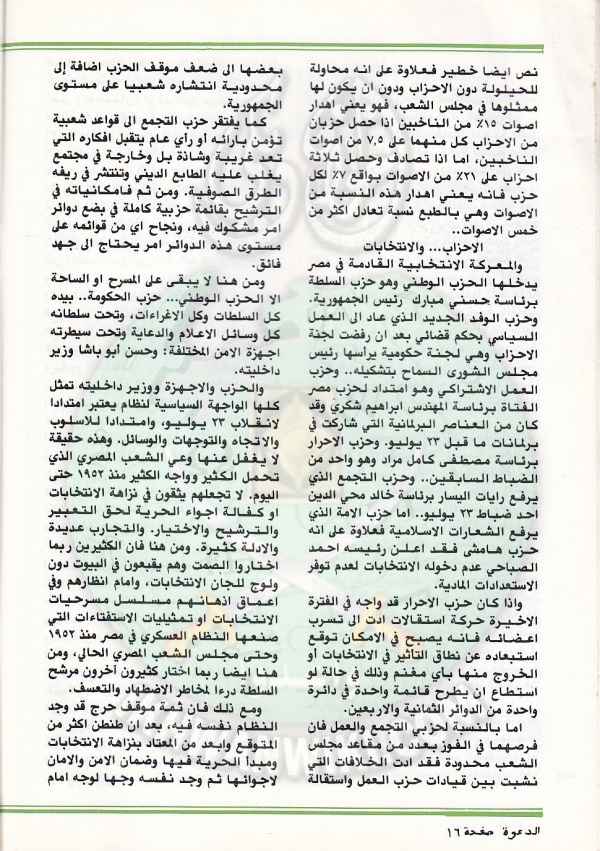 نص ايضا خطير فعلاوة على انه محاولة
للحيلولة دون الاحزاب ودون ان يكون لها
ممثلوها في مجلس الشعب، فهو يعني اهدار
اصوات ١٥٪ من الناخبين اذا حصل حزبان
من الاحزاب كل منهما على ٧,٥ من اصوات
الناخبين، اما اذا تصادف وحصل ثلاثة
احزاب على ٢١٪ من الاصوات بواقع ٧٪ لكل
حزب فانه يعني اهدار هذه النسبة من
الاصوات وهي بالطبع نسبة تعادل اكثر من
خمس الاصوات..
الاحزاب... والانتخابات
والمعركة الانتخابية القادمة في مصر
يدخلها الحزب الوطني وهو حزب السلطة
برئاسة حسني مبارك رئيس الجمهورية.
وحزب الوفد الجديد الذي عاد الى العمل
السياسي بحكم قضائي بعد ان رفضت لجنة
الاحزاب وهي لجنة حكومية يرأسها رئيس
مجلس الشورى السماح بتشكيله.. وحزب
العمل الاشتراكي وهو امتداد لحزب مصر
الفتاة برئاسة المهندس ابراهيم شكري وقد
كان من العناصر البرلمانية التي شاركت في
برلمانات ما قبل ٢٣ يوليو. وحزب الاحرار
برئاسة مصطفى كامل مراد وهو واحد من
الضباط السابقين.. وحزب التجمع الذي
يرفع رايات اليسار برئاسة خالد محي الدين
احد ضباط ٢٣ يوليو.. اما حزب الامة الذي
يرفع الشعارات الاسلامية فعلاوة على انه
حزب هامشي فقد اعلن رئيسه احمد
الصباحي عدم دخوله الانتخابات لعدم توفر
الاستعدادات المادية.
واذا كان حزب الاحرار قد واجه في الفترة
الاخيرة حركة استقالات ادت الى تسرب
اعضائه فانه يصبح في الامكان توقع
استبعاده عن نطاق التأثير في الانتخابات أو
الخروج منها بأي مغنم وذلك في حالة لو
استطاع ان يطرح قائمة واحدة في دائرة
واحدة من الدوائر الثمانية والاربعين.
اما بالنسبة لحزبي التجمع والعمل فان
فرصهما في الفوز بعدد من مقاعد مجلس
الشعب محدودة فقد ادت الخلافات التي
نشبت بين قيادات حزب العمل واستقالة
بعضها الى ضعف موقف الحزب اضافة إلى
محدودية انتشاره شعبيا على مستوى
الجمهورية.
كما يفتقر حزب التجمع الى قواعد شعبية
تؤمن بارائه أو رأي عام يتقبل افكاره التي
تعد غريبة وشاذة بل وخارجة في مجتمع
يغلب عليه الطابع الديني وتنتشر في ريفه
الطرق الصوفية. ومن ثم فامكانياته في
الترشيح بقائمة حزبية كاملة في بضع دوائر
امر مشكوك فيه، ونجاح اي من قوائمه على
مستوى هذه الدوائر امر يحتاج الى جهد
فائق.
ومن هنا لا يبقى على المسرح او الساحة
الا الحزب الوطني... حزب الحكومة.. بيده
كل السلطات وكل الاغراءات، وتحت سلطانه
كل وسائل الاعلام والدعاية وتحت سيطرته
اجهزة الامن المختلفة: وحسن أبو باشا وزير
داخليته.
والحزب والاجهزة ووزير داخليته تمثل
كلها الواجهة السياسية لنظام يعتبر امتدادا
لانقلاب ٢٣ يوليو، وامتدادا للأسلوب
والاتجاه والتوجهات والوسائل. وهذه حقيقة
لا يغفل عنها وعي الشعب المصري الذي
تحمل الكثير وواجه الكثير منذ ١٩٥٢ حتى
اليوم. لا تجعلهم يثقون في نزاهة الانتخابات
او كفالة اجواء الحرية لحق التعبير
والترشيح والاختيار. والتجارب عديدة
والادلة كثيرة. ومن هنا فان الكثيرين ربما
اختاروا الصمت وهم يقبعون في البيوت دون
ولوج للجان الانتخابات، وامام انظارهم وفي
اعماق اذهانهم مسلسل مسرحيات
الانتخابات أو تمثيليات الاستفتاءات التي
صنعها النظام العسكري في مصر منذ ١٩٥٢
وحتى مجلس الشعب المصري الحالي، ومن
هنا ايضا ربما اختار كثيرون آخرون مرشح
السلطة درءا لمخاطر الاضطهاد والتعسف.
ومع ذلك فان ثمة موقف حرج قد وجد
النظام نفسه فيه، بعد ان طنطن اكثر من
المتوقع وابعد من المعتاد بنزاهة الانتخابات
ومبدأ الحرية فيها وضمان الامن والامان
لاجوائها ثم وجد نفسه وجها لوجه امام
الدعوة صفحة ١٦